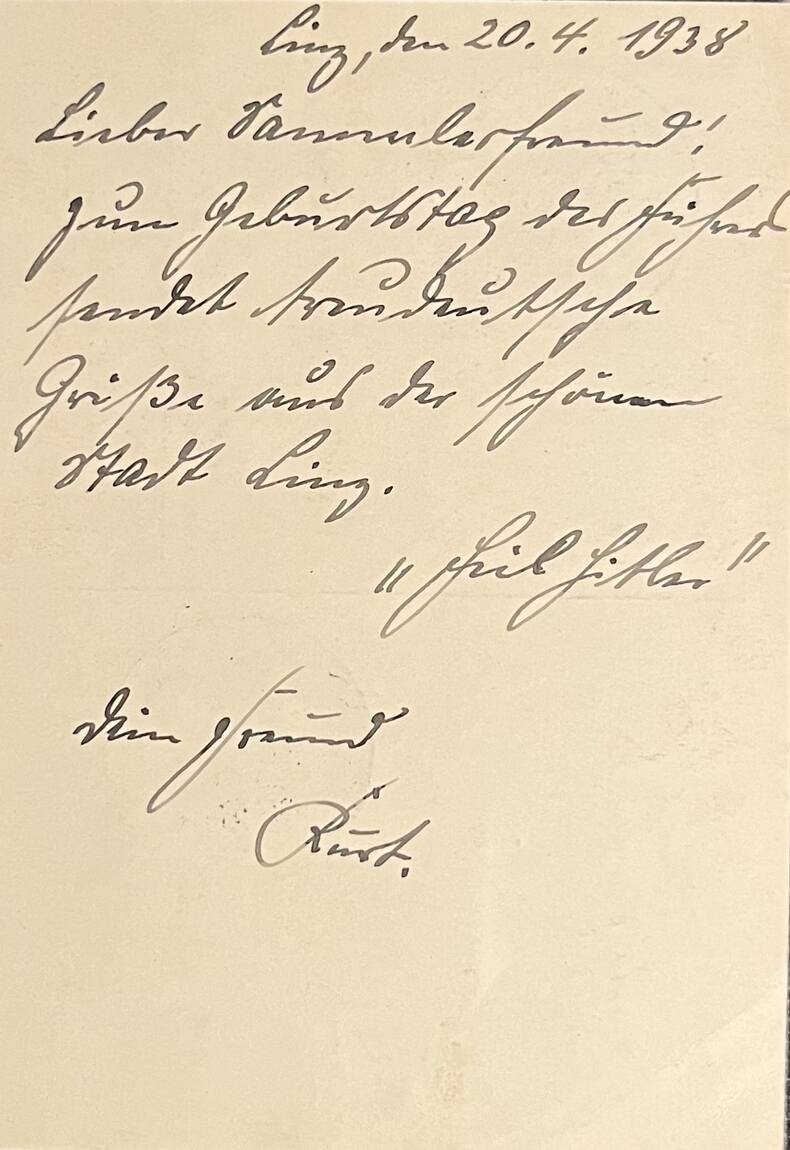 Linz, den 20. 4. 1938
Lieber Sammlerfreund!
zum Geburtstag des Führers
sendet treudeutsche
Grüße aus der schönen
Stadt Linz.
„Heil Hitler"
Dein Freund
Kurt.